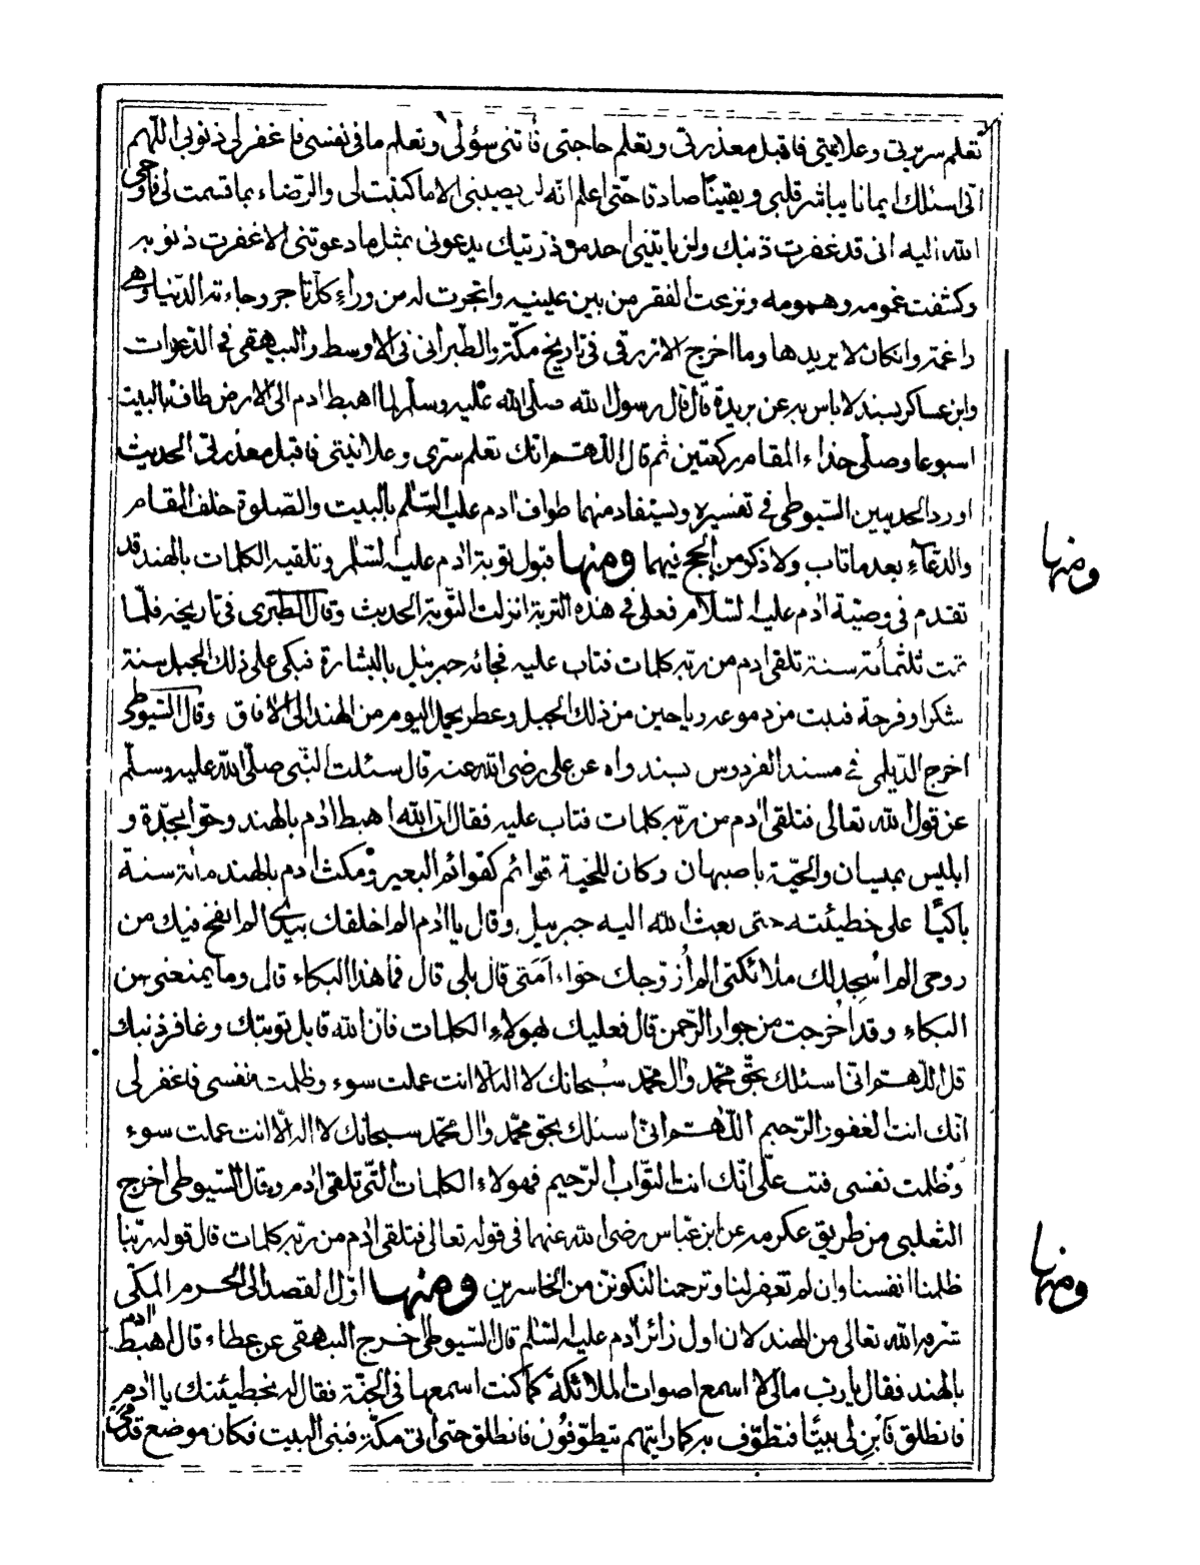 تعلم سريرتي وعلانيتي فاقبل معذرتي وتعلم حاجتي فأتني سؤلي وتعلم ما في نفسي فاغفر لي ذنوبي اللهم
اني اسئلك ايمانا يباشر قلبي ويقينا صادقا حتى اعلم انه لن يصيبني الا ما كتبت لي والرضاء بما قسمت لي فاوحى
الله اليه اني قد غفرت ذنبك ولن ياتيني احد من ذريتك يدعوني بمثل ما دعوتني الا غفرت ذنوبه
وكشفت غمومه وهمومه ونزعت الفقر من بين عينيه واتجرت له من وراء كل تاجر وجاءته الدنيا وهي
راغمة وان كان لا يريدها وما اخرج الازرقي في تاريخ مكة والطبراني في الاوسط والبيهقي في الدعوات
وابن عساكر بسند لا باس به عن بريدة قال قال رسول الله صلى الله عليه وسلم لما اهبط ادم الى الارض طاف بالبيت
اسبوعا وصلى حذاء المقام ركعتين ثم قال اللهم انك تعلم سري وعلانيتي فاقبل معذرتي الحديث
اورد الحديثين السيوطي في تفسيره ويستفاد منهما طواف ادم عليه السلم بالبيت والصلوة خلف المقام
والدعاء بعد ما تاب ولا ذكر من الحج فيهما ومنها قبول توبة ادم عليه السلم وتلقيه الكلمات بالهند قد
تقدم في وصية ادم عليه السلام فعلى في هذه التربة انزلت التوبة الحديث وقال الطبري في تاريخه فلما
تمت ثلثمأئة سنة تلقى ادم من ربه كلمات فتاب عليه فجائه جبرئيل بالبشارة فبكى على ذلك الجبل سنة
شكرا وفرحة فنبت من دموعه رياحين من ذلك الجبل وعطر يحمل اليوم من الهند الى الافاق وقال السيوطي
اخرج الديلمي في مسند الفردوس بسند واه عن علي رضي الله عنه قال سئلت النبي صلى الله عليه وسلم
عن قول الله تعالى فتلقى ادم من ربه كلمات فتاب عليه فقال ان الله اهبط ادم بالهند وحوا بجدة و
ابليس بميسان والحية باصبهان وكان للحية قوائم كقوائم البعير ومكث ادم بالهند مائة سنة
باكيا على خطيئته حتى بعث الله اليه جبريل وقال يا ادم الم اخلقك بيدي الم انفخ فيك من
روحي الم اسجد لك ملائكتي الم ازوجك حواء امتي قال بلى قال فما هذا البكاء قال وما يمنعني من
البكاء وقد اخرجت من جوار الرحمن قال فعليك بهولاء الكلمات فان الله قابل توبتك وغافر ذنبك
قل اللهم اني اسئلك بحق محمد وال محمد سبحانك لا اله الا انت عملت سوء وظلمت نفسي فاغفر لي
انك انت الغفور الرحيم اللهم اني اسئلك بحق محمد وال محمد سبحانك لا اله الا انت عملت سوء
وظلمت نفسي فتب علي انك انت التواب الرحيم فهولاء الكلمات التي تلقى ادم وقال السيوطي اخرج
الثعلبي من طريق عكرمه عن ابن عباس رضي الله عنهما في قوله تعالى فتلقى ادم من ربه كلمات قال قوله ربنا
ظلمنا انفسنا وان لم تغفر لنا وترحمنا لنكونن من الخاسرين ومنها اول القصد الى الحرم المكي
شرفه الله تعالى من الهند لان اول زائر ادم عليه السلم قال السيوطي اخرج البيهقي عن عطاء قال اهبط ادم
بالهند فقال يا رب مالي لا اسمع اصوات الملائكة كما كنت اسمعها في الجنة فقال له بخطيئتك يا ادم
فانطلق فابن لي بيتا فتطوف به كما رايتهم يتطوفون فانطلق حتى اتى مكة فبنى البيت فكان موضع قدمي
ومنها
ومنها